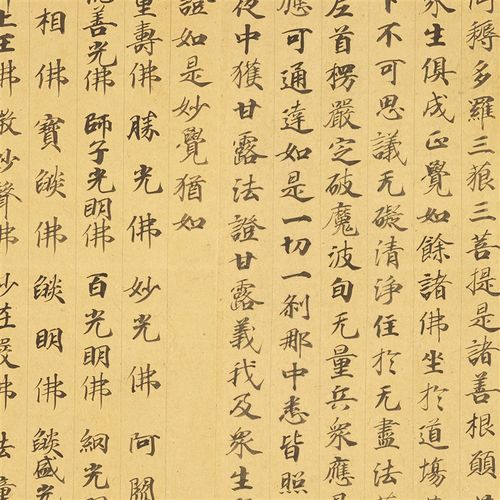 耨多羅三藐三菩提是諸善根願
衆生俱成正覺如餘諸佛坐於道場
下不可思議无礙清淨住於无盡法
首楞嚴定破魔波旬无量兵衆應
應可通達如是一切一剎那中悉皆照
夜中獲甘露法證甘露義我及衆生
證如是妙覺猶如
量壽佛 勝光佛 妙光佛 阿閦
善光佛 師子光明佛 百光明佛 網光
相佛 寶燄佛 燄明佛 燄盛光
上王佛 微妙聲佛 妙莊嚴佛 法幢